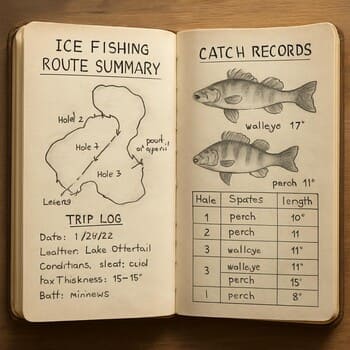 ICE FISHING
ROUTE SUMMARY
Hole 2
Hole 7
Hole 3
TRIP LOG
Dato: 1/20/22
Leather: Lake Ottertail
Conditians, sleat; cuid
Thiskness: 15–15"
Batt: minnews
CATCH RECORDS
walleye 17"
perch 11"
Hale Spates length
1 perch 10"
2 perch 11
3 walleye 11"
3 walleye 11"
perch 15'
1 perch 8"